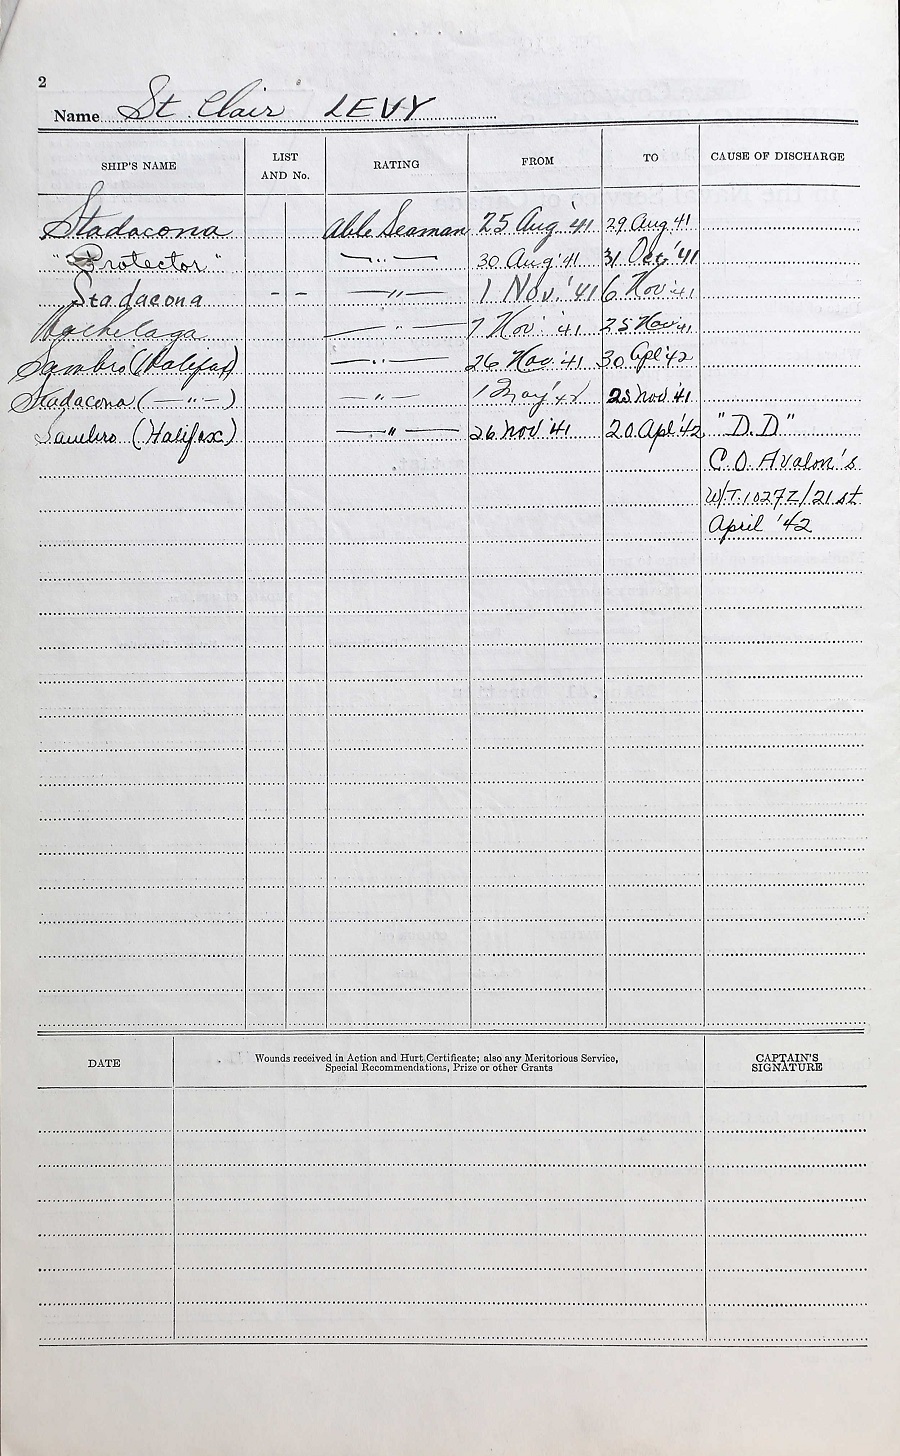 2
Name St. Clair LEVY
SHIP'S NAME LIST AND No. RATING FROM TO CAUSE OF DISCHARGE
Stadacona Able Seaman 25 Aug '41 29 Aug 41
"Protector" —"— 30 Aug '41 31 Oct '41
Stadacona - - —"— 1 Nov. '41 6 Nov '41
Hochelaga —"— 7 Nov '41 25 Nov 41
Sambro (Halifax) —"— 26 Nov '41 30 Apl '42
Stadacona (—"—) —"— 1 May '42 25 Nov '41
Sambro (Halifax) —"— 26 Nov '41 20 Apl '42 "D.D"
C.O. Avalon's
W/T. 1027Z/21st
April '42
DATE Wounds received in Action and Hurt Certificate; also any Meritorious Service, CAPTAIN'S
Special Recommendations, Prize or other Grants SIGNATURE